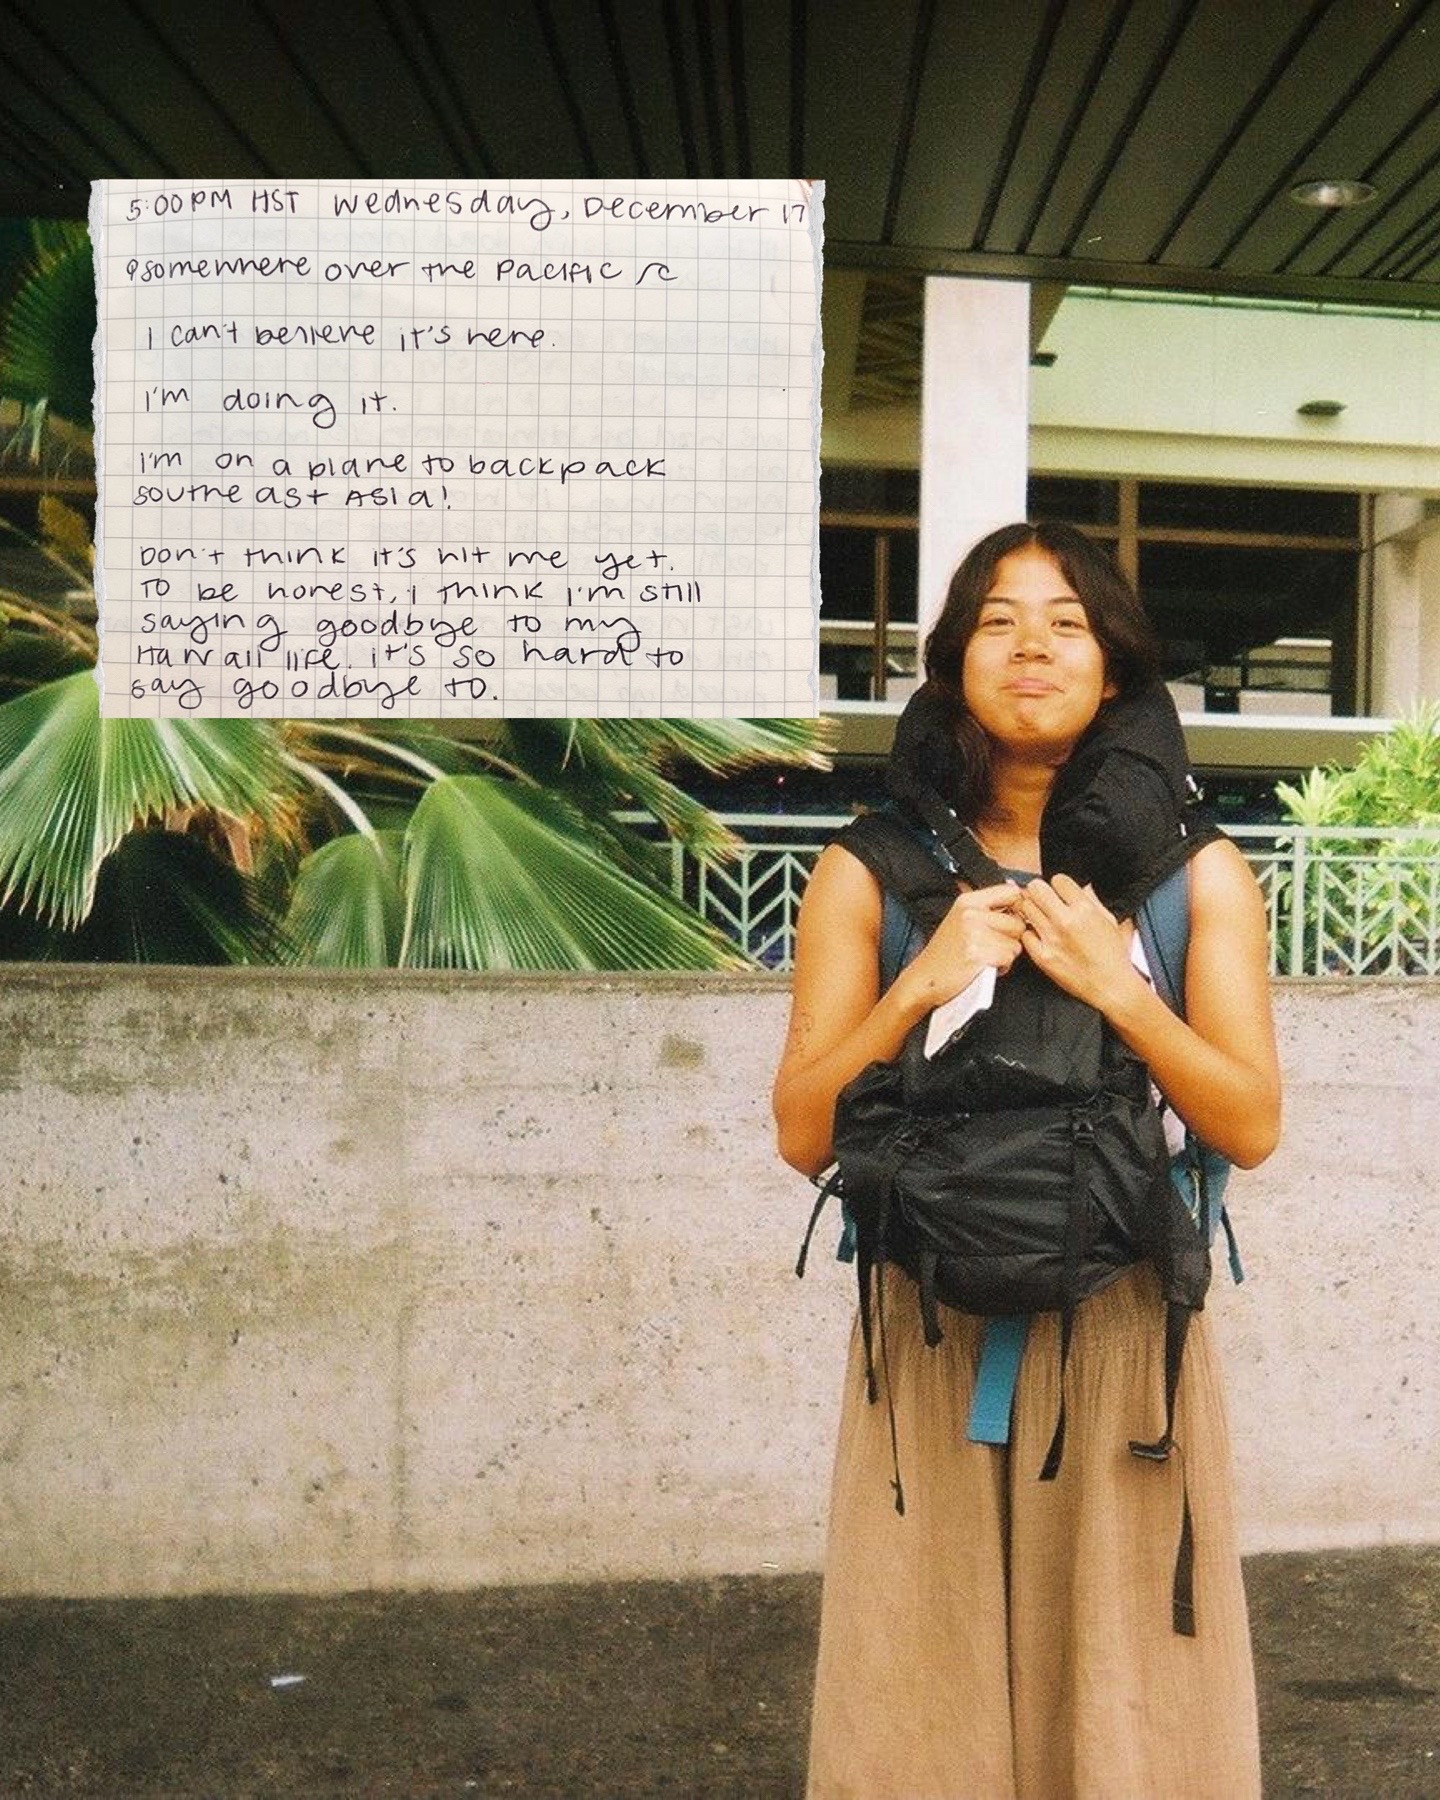 5:00PM HST Wednesday, December 17
somewhere over the Pacific
I can't believe it's here.
I'm doing it.
I'm on a plane to backpack
southeast ASIA!
Don't think it's hit me yet.
TO be honest, I think I'm still
saying goodbye to my
Hawaii life. it's so hard to
say goodbye to.